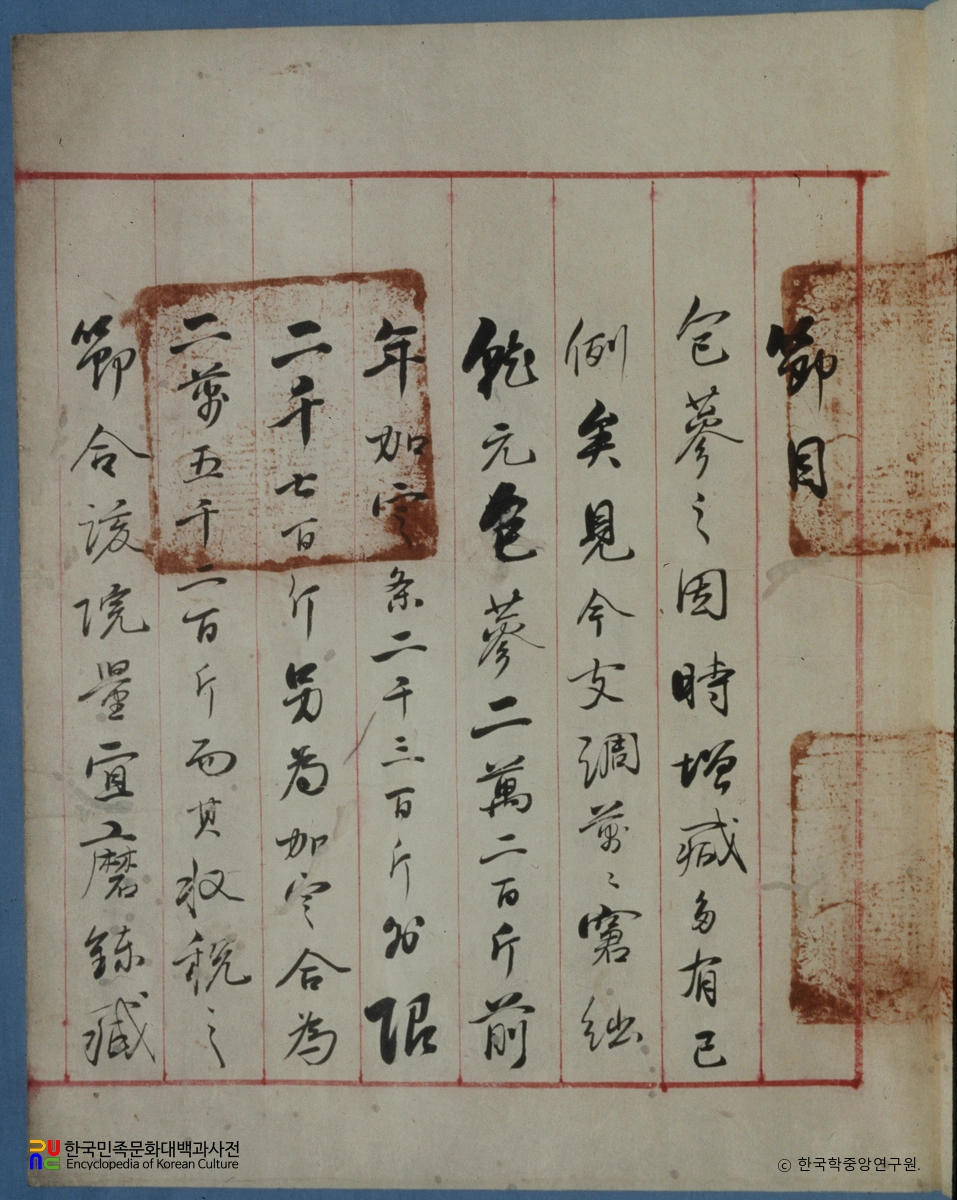 節目
包蔘之因時增減多有已
例矣見今支調萬〻窘絀
就元包蔘二萬二百斤前
年加定条二千三百斤外限
二千七百斤另為加定合為
二萬五千二百斤而其收稅之
節令該院量宜磨鍊減
한국민족문화대백과사전
Encyclopedia of Korean Culture
ⓒ 한국학중앙연구원.